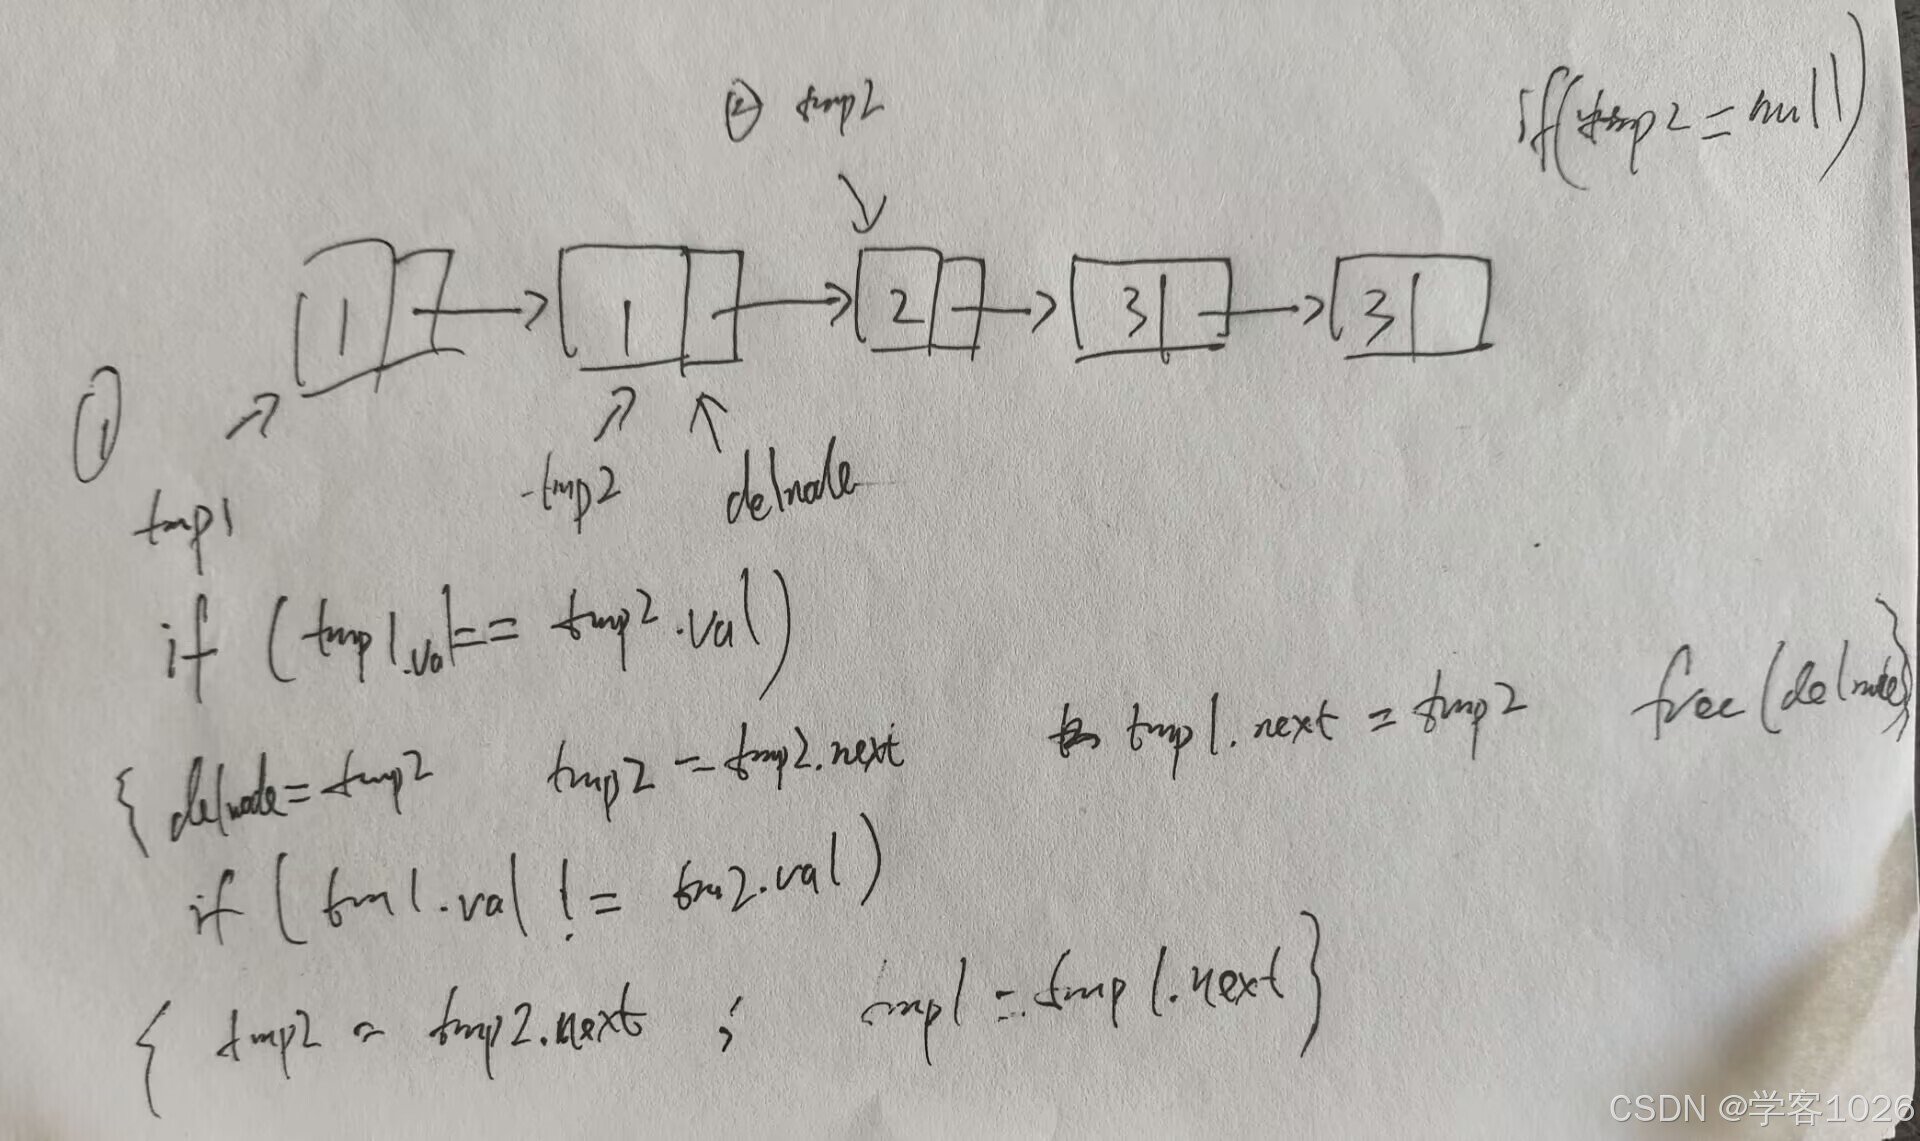 ② tmp2
if(tmp2=null)
1 1 2 3 3
①
tmp1
tmp2 delnode
if (tmp1.val== tmp2.val)
{delnode=tmp2 tmp2=tmp2.next tmp1.next=tmp2 free(delnode)}
if (tm1.val != tm2.val)
{ tmp2 = tmp2.next ; tmp1=tmp1.next}
CSDN @学客1026